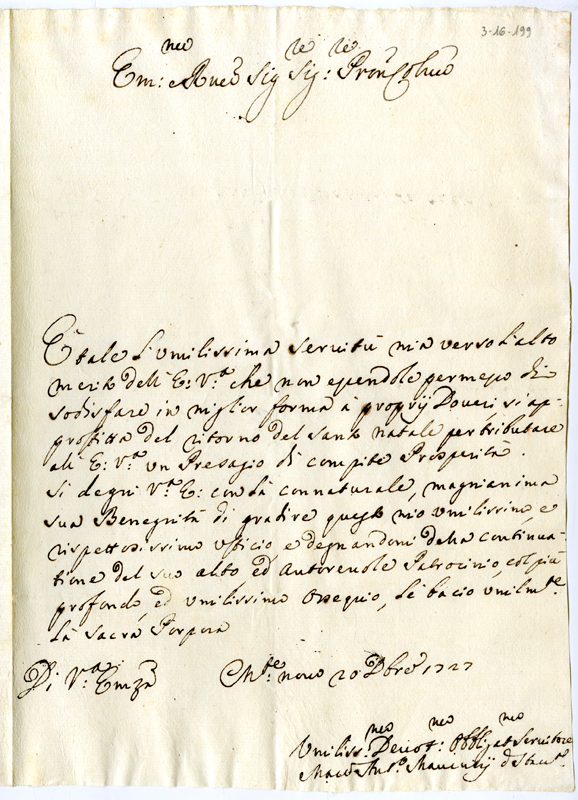 3-16-199
Em:neo Rmo Sig.re Sig:re Pron Colmo
È tale l'umilissima seruitù mia verso l'alto
merito dell'E: V.ra che non essendole permesso di
sodisfare in miglior forma à proprij Doueri, si ap-
profitta del ritorno del santo natale per tributare
all'E: V.ra un Presagio di compite Prosperità.
Si degni V.ra E: con la connaturale, magnanima
sua Benegnità di gradire questo mio umilissimo, e
rispettosissimo ufficio, e degnandomi della continua-
tione del suo alto, ed autoreuole Patrocinio, col più
profondo, ed umilissimo ossequio, le bacio umilm.te
la sacra Porpora
Di V.ra Emza M.te nouo 20 Xbre 1727
Umiliss:mo Deuot:mo Obbligatmo Seruitore